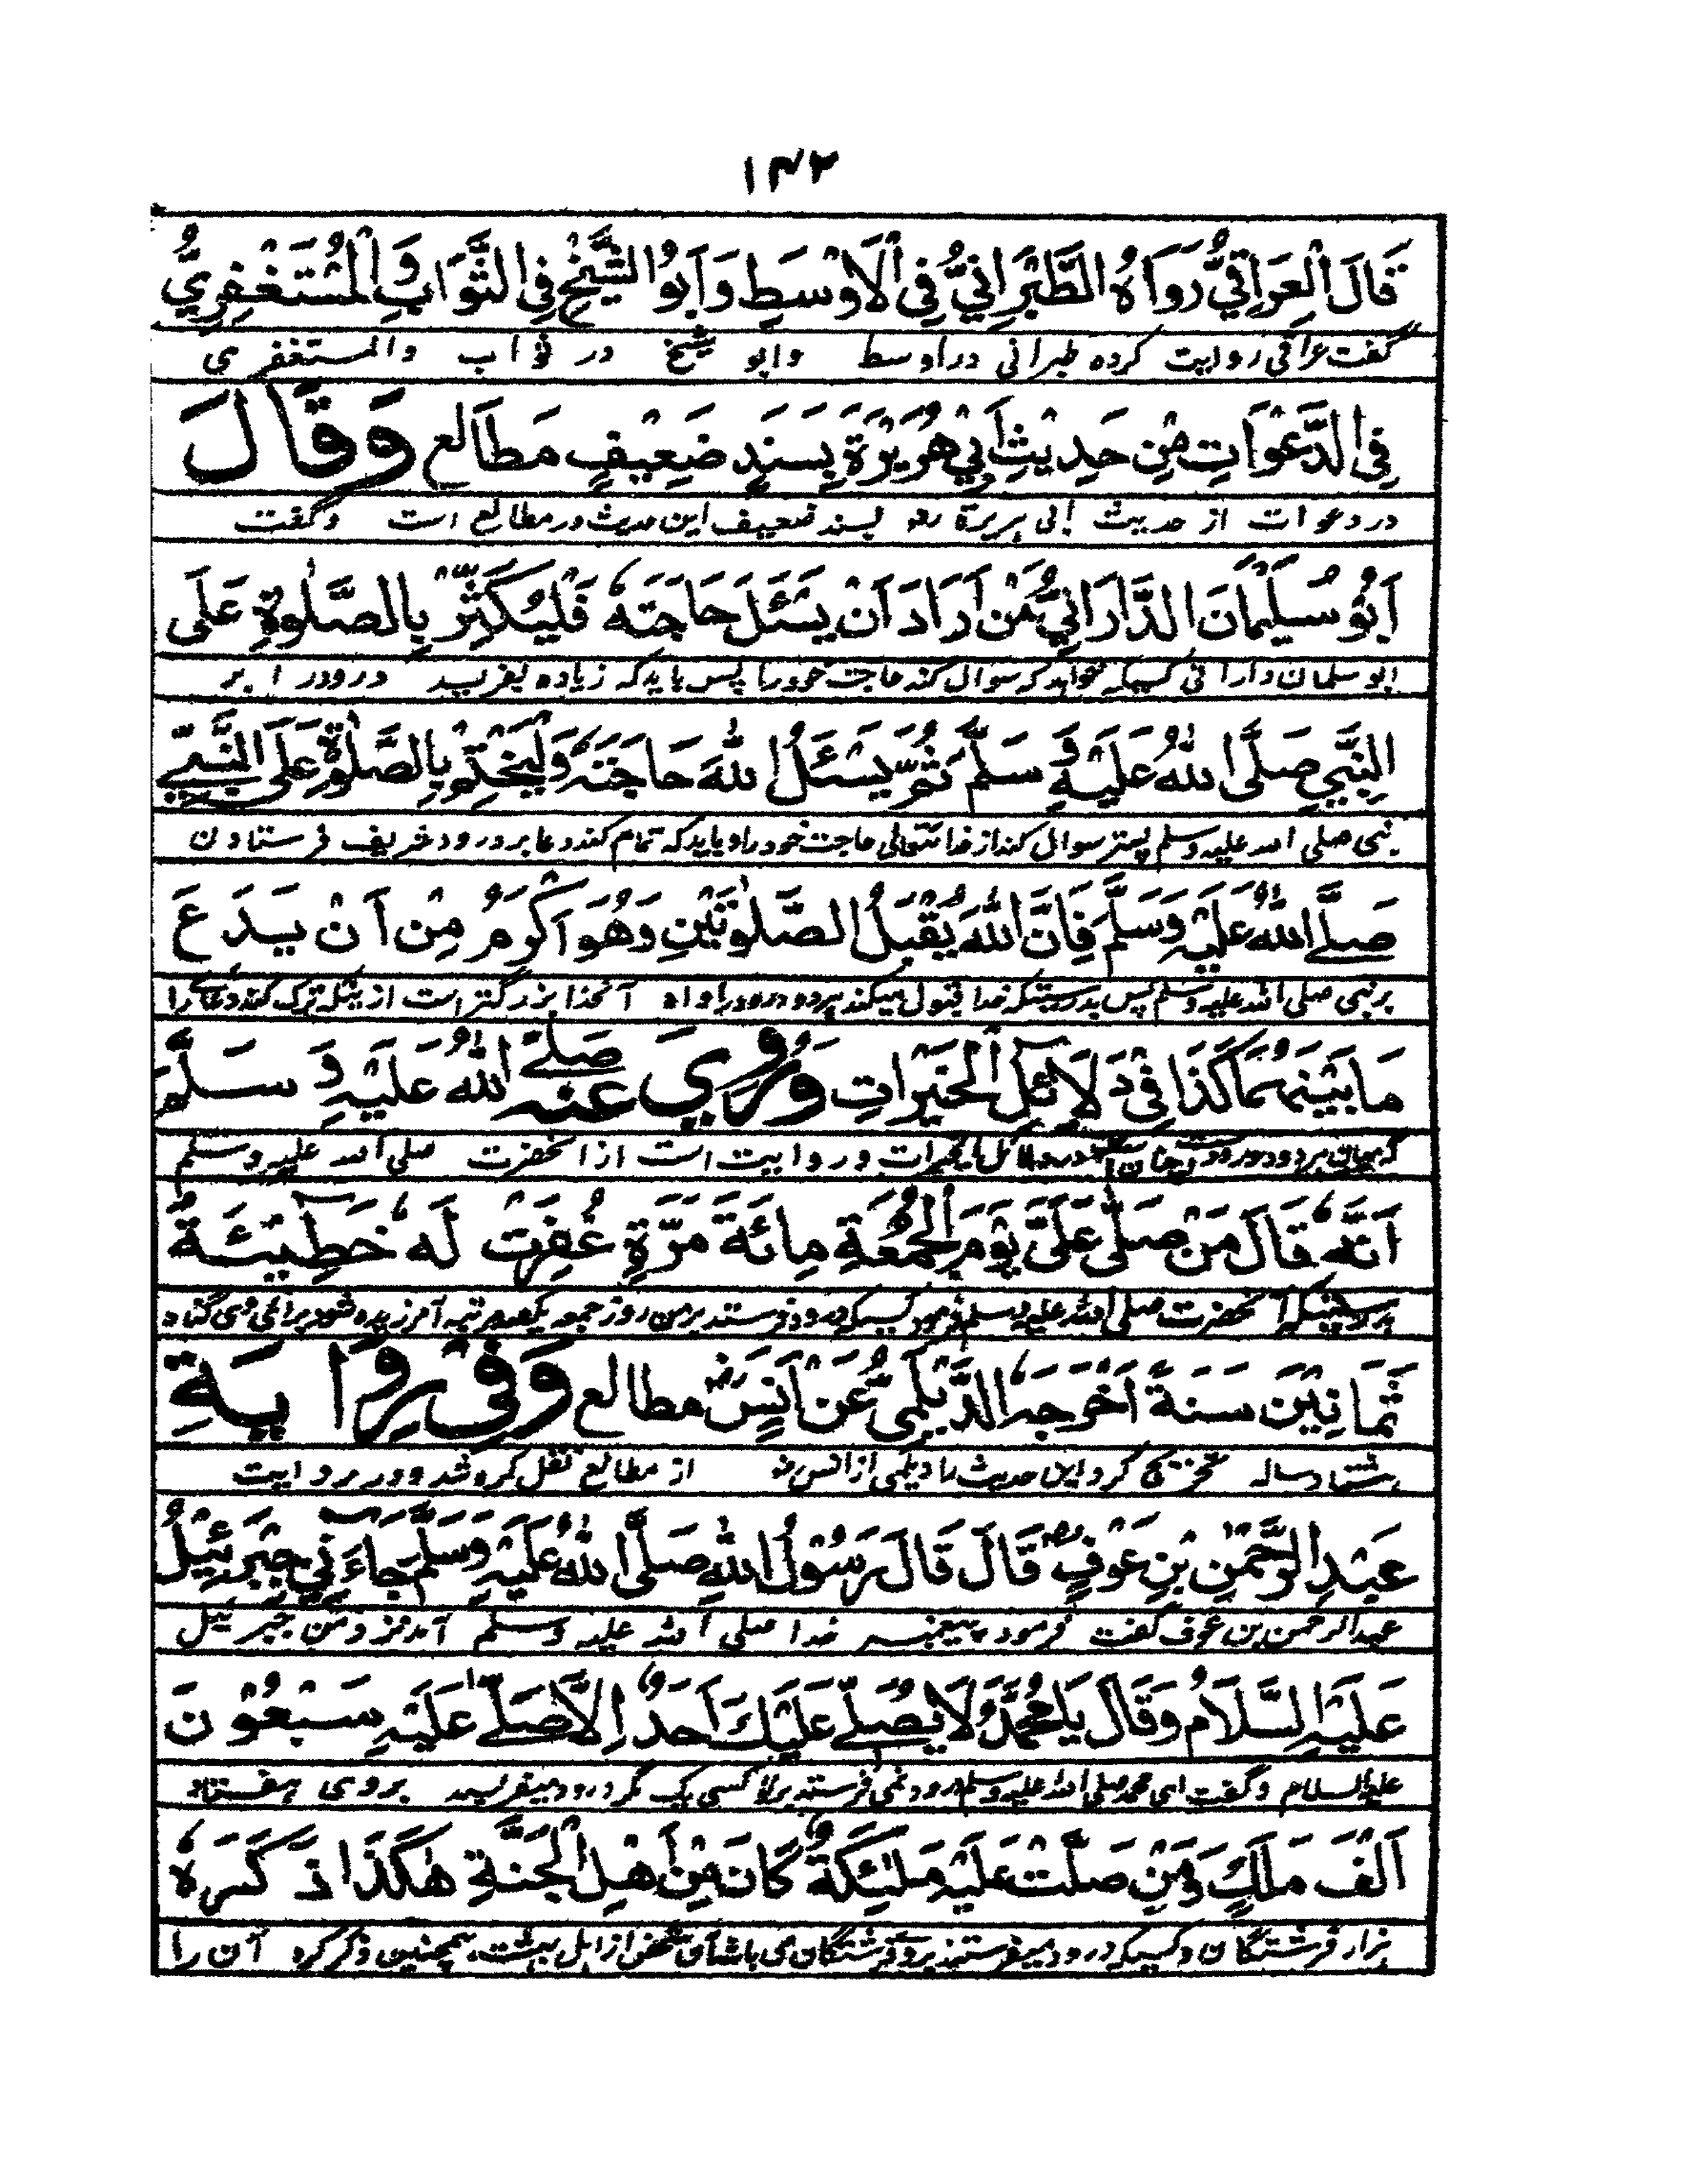 ۱۴۲
قَالَ الْعِرَاقِيُّ رَوَاهُ الطَّبْرَانِيُّ فِی الْاَوْسَطِ وَاَبُو الشَّيْخِ فِی الثَّوَابِ وَالْمُسْتَغْفِرِيُّ
گفت عراقی روایت کرده طبرانی در اوسط وابو شیخ در ثواب والمستغفری
فِی الدَّعَوَاتِ مِنْ حَدِيْثِ اَبِيْ هُرَيْرَةَ بِسَنَدٍ ضَعِيْفٍ مَطَالع وَقَالَ
در دعوات از حدیث ابی ہریرة رضہ بسند ضعیف این حدیث در مطالع است وگفت
اَبُوْ سُلَيْمَانَ الدَّارَانِيُّ مَنْ اَرَادَ اَنْ يَسْئَلَ حَاجَتَهٗ فَلْيُكَثِّرْ بِالصَّلٰوةِ عَلَی
ابو سلمان دارانی کسیکہ خواہد کہ سوال کند حاجت خود را پس باید کہ زیادہ بفرسد درود را بر
النَّبِيِّ صَلَّی اللهُ عَلَيْهِ وَسَلَّمَ ثُمَّ يَسْئَلُ اللهَ حَاجَتَهٗ وَلْيَخْتِمْ بِالصَّلٰوةِ عَلَی النَّبِيِّ
نبی صلی اللہ علیہ وسلم پستر سوال کند از خدا تعالی حاجت خود را و باید کہ تمام کند دعا بر درود شریف فرستادن
صَلَّے اللهُ عَلَيْهِ وَسَلَّمَ فَاِنَّ اللهَ يَقْبَلُ الصَّلٰوتَيْنِ وَهُوَ اَكْرَمُ مِنْ اَنْ يَدَعَ
بر نبی صلی اللہ علیہ وسلم پس بدرستیکہ خدا قبول میکند ہر دو درود را و او آنخدا بزرگتر است از ینکہ ترک کند دعای را
مَا بَيْنَهُمَا كَذَا فِیْ دَلَائِلِ الْخَيْرَاتِ وَرُوِيَ عَنْهُ صَلَّے اللهُ عَلَيْهِ وَسَلَّمَ
کہ میان ہر دو درود است در دلائل الخیرات و روایت است از آنحضرت صلی اللہ علیہ وسلم
اَنَّهٗ قَالَ مَنْ صَلّٰی عَلَيَّ يَوْمَ الْجُمُعَةِ مِائَةَ مَرَّةٍ غُفِرَتْ لَهٗ خَطِيْئَةُ
آنحضرت صلی اللہ علیہ وسلم فرمود کسیکہ درود فرستد بر من روز جمعہ یکصد مرتبہ آمرزیدہ شود برائی وی گناہ
ثَمَانِيْنَ سَنَةً اَخْرَجَهُ الدَّيْلَمِيُّ عَنْ اَنَسٍ رض مطالع وَفِیْ رِوَايَةِ
ہشتاد سالہ تخریج کرد این حدیث را دیلمی از انس رضہ از مطالع نقل کرہ شد ودر روایت
عَبْدِ الرَّحْمٰنِ بْنِ عَوْفٍ رض قَالَ قَالَ رَسُوْلُ اللهِ صَلَّی اللهُ عَلَيْهِ وَسَلَّمَ جَاءَنِيْ جِبْرَئِيْلُ
عبدالرحمن بن عوف گفت فرمود پیغمبر خدا صلی اللہ علیہ وسلم آمد نزد من جبرئیل
عَلَيْهِ السَّلَامُ وَقَالَ يَا مُحَمَّدُ لَا يُصَلِّے عَلَيْكَ اَحَدٌ اِلَّا صَلّٰے عَلَيْهِ سَبْعُوْنَ
علیہ السلام وگفت ای محمد صلی اللہ علیہ وسلم درود نمی فرستد بر تو کسی یک مگر درود میفرسد بروی ہفتاد
اَلْفَ مَلَكٍ وَمَنْ صَلَّتْ عَلَيْهِ مَلٰئِكَةٌ كَانَ مِنْ اَهْلِ الْجَنَّةِ هٰكَذَا ذَكَرَهٗ
ہزار فرشتگان وکسیکہ درود میفرستند بروی فرشتگان می باشد آن شخص از اہل بہشت ہمچنین ذکر کرد آن را